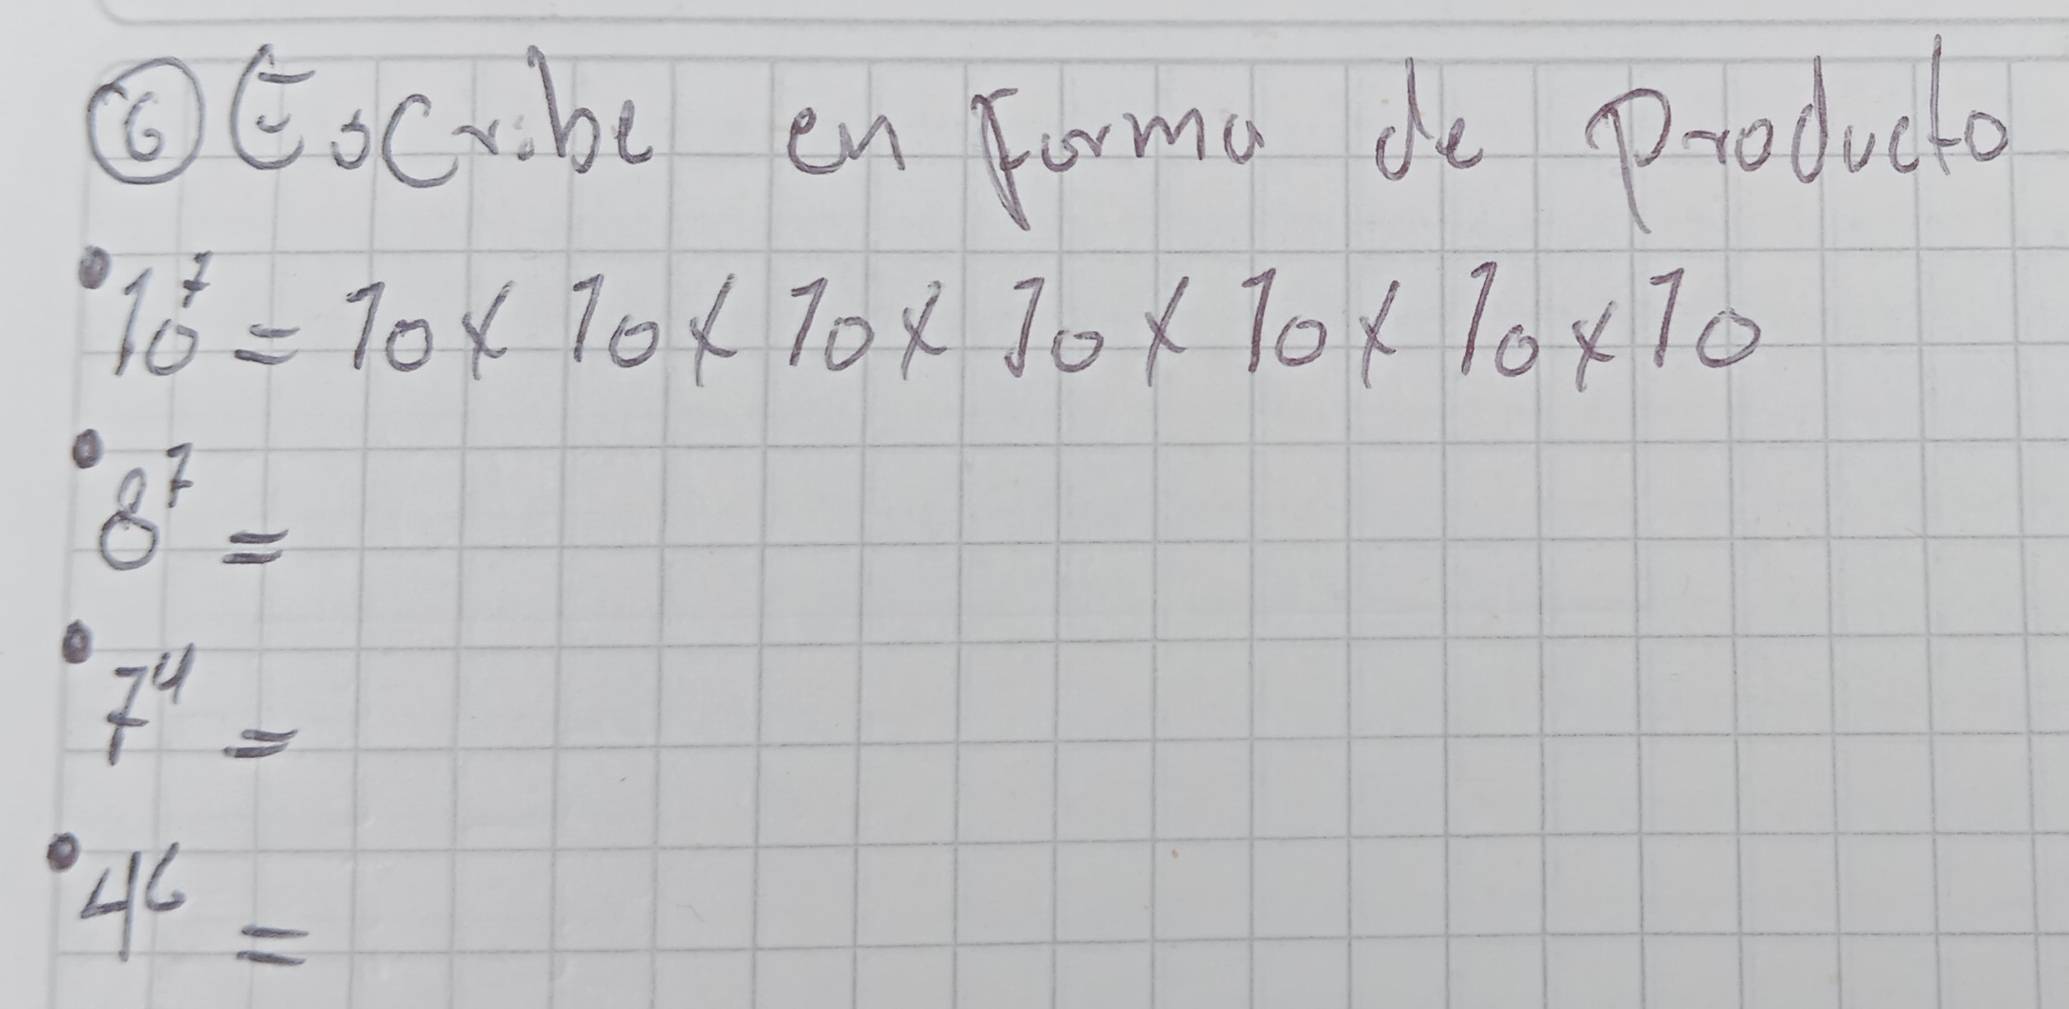 ⑥ Escribe en forma de Producto
• 10⁷ = 10 x 10 x 10 x 10 x 10 x 10 x 10
• 8⁷ =
• 7⁴ =
• 4⁶ =